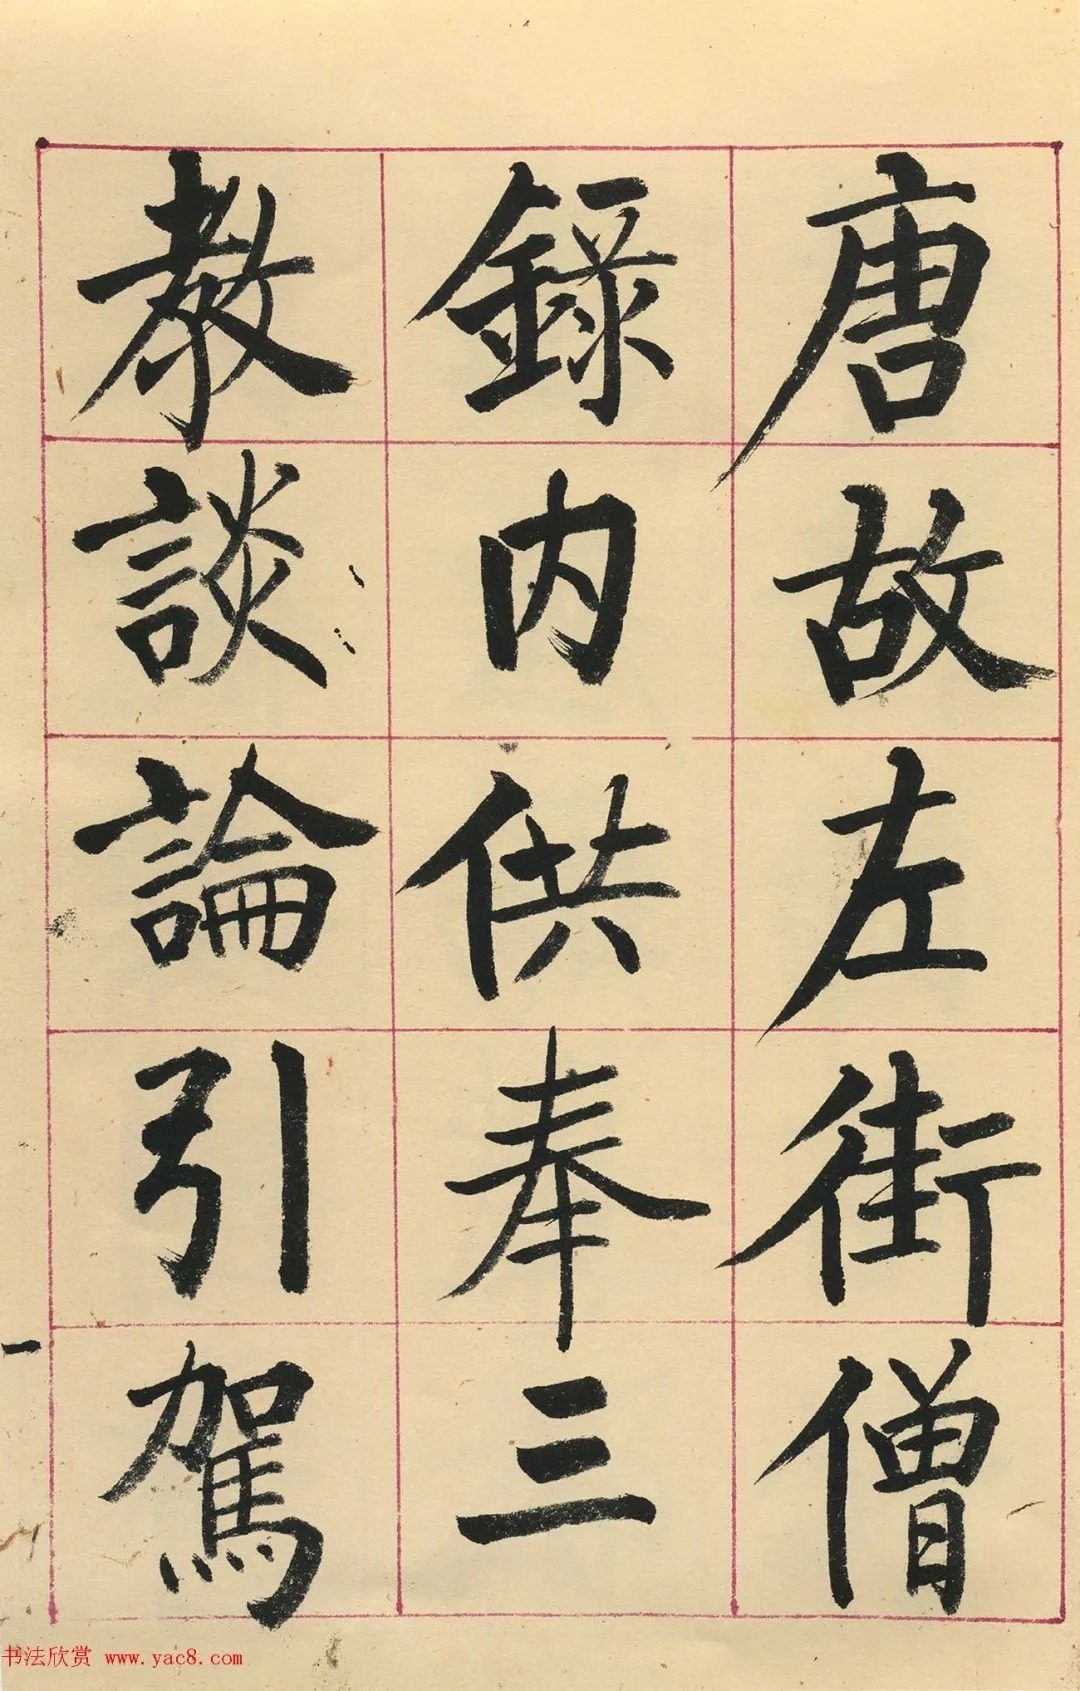 唐故左街僧
錄內供奉三
教談論引駕
一
书法欣赏 www.yac8.com